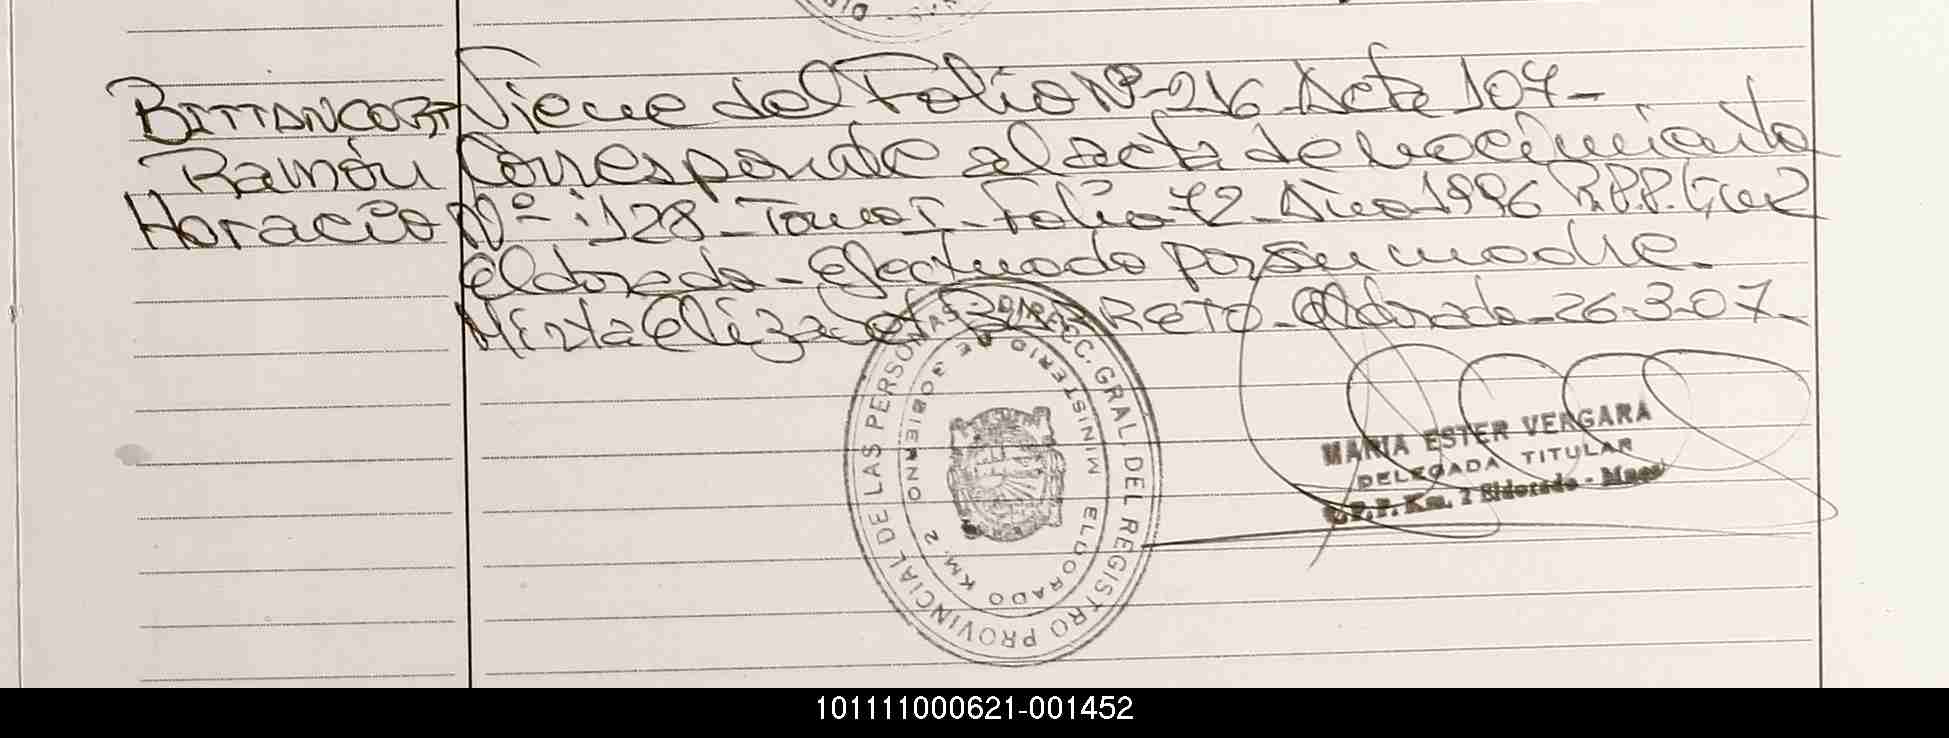 BITTANCORT Viene del Folio Nº-216 Acta 107-
Ramón Corresponde al acta de nacimiento
Horacio Nº:128-Tomo I-Folio 72-Año 1996 R.P.P.
Eldorado-Efectuado por su madre
Mirta Elizabet BARRETO-Eldorado-26-3-07-
DIREC. GRAL. DEL REGISTRO PROVINCIAL DE LAS PERSONAS
MINISTERIO DE GOBIERNO
ELDORADO KM. 2
MARIA ESTER VERGARA
DELEGADA TITULAR
R.P.P. Km. 2 Eldorado - Mnes
101111000621-001452